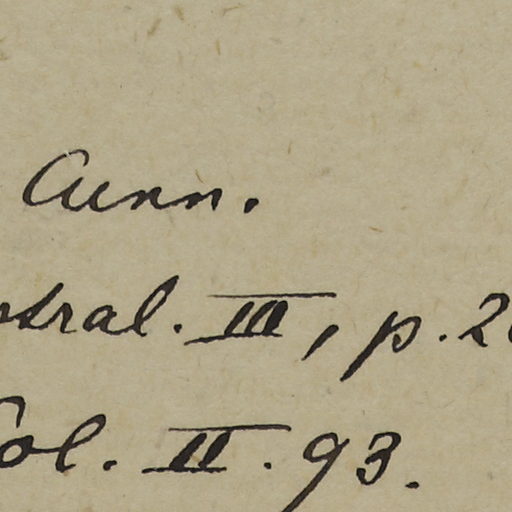 Cunn.
stral. III, p. 2
ol. II. 93.